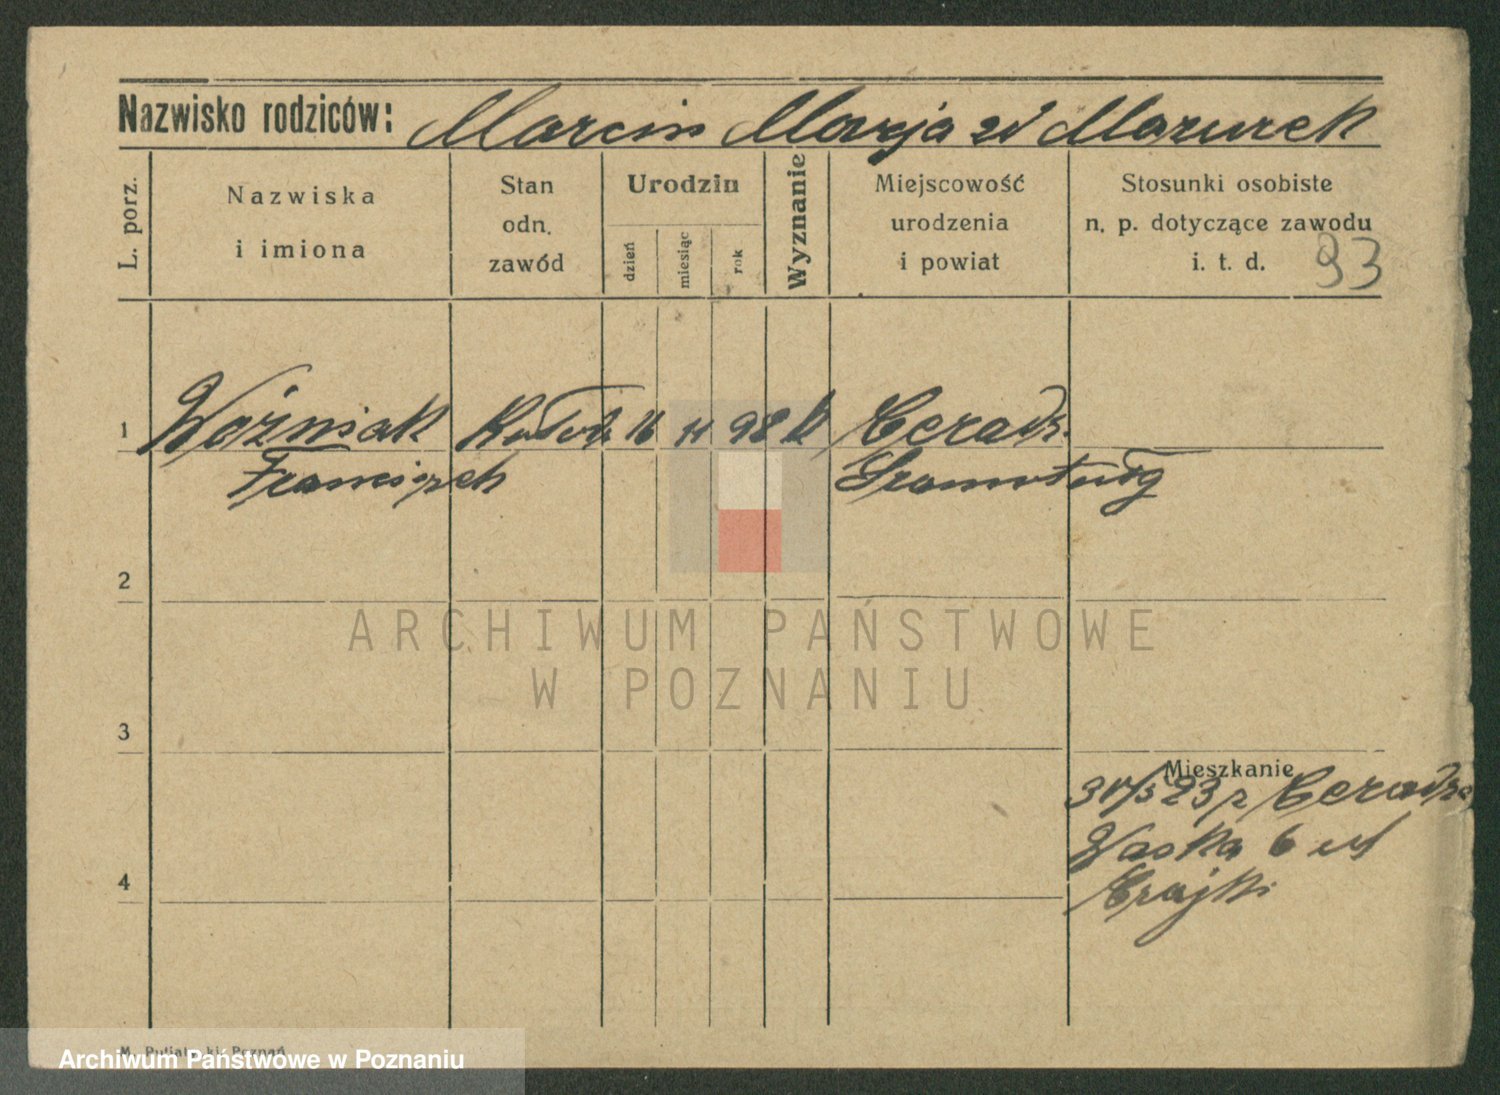 Nazwisko rodziców: Marcin Marja zd Mazurek
L. porz.
Nazwiska
i imiona
Stan
odn.
zawód
Urodzin
dzień
miesiąc
rok
Wyznanie
Miejscowość
urodzenia
i powiat
Stosunki osobiste
n. p. dotyczące zawodu
i. t. d.
93
1
Woźniak
16 11 98 k
Ceradz
Franciszek
2
ARCHIWUM PAŃSTWOWE
W POZNANIU
3
Mieszkanie
23 z Ceradza
Wąska 6
4
Czajki
Archiwum Państwowe w Poznaniu